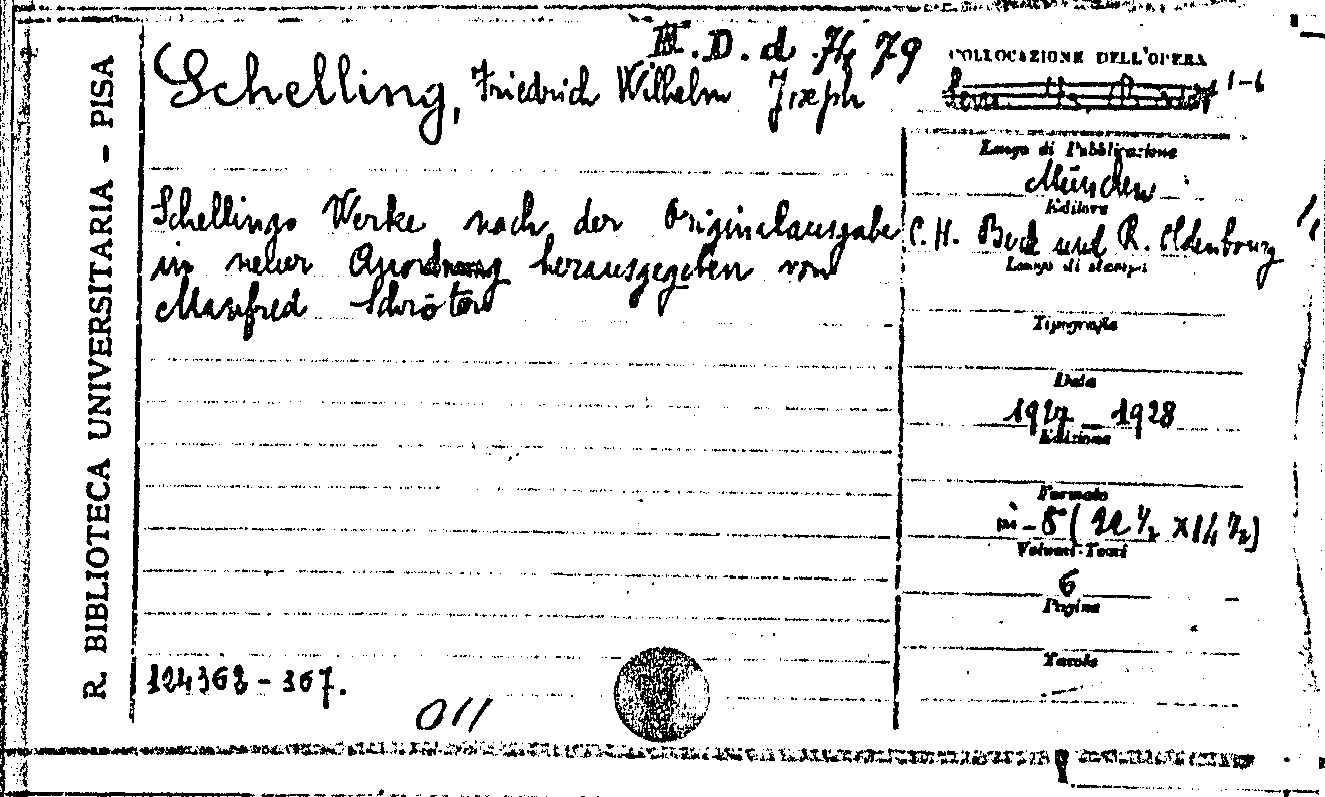 R. BIBLIOTECA UNIVERSITARIA - PISA
H. D. d. 7/4 79
COLLOCAZIONE DELL'OPERA
1-6
Schelling, Friedrich Wilhelm Joseph
Luogo di Pubblicazione
München
Editore
Schellings Werke nach der Originalausgabe
C. H. Beck und R. Oldenbourg
in neuer Anordnung herausgegeben von
Luogo di stampa
Manfred Schröter
Tipografia
Data
1927 - 1928
Edizione
Formato
in - 8° (22 1/2 X 14 1/2)
Volumi-Tomi
6
Pagine
Tavole
124362 - 367.
011